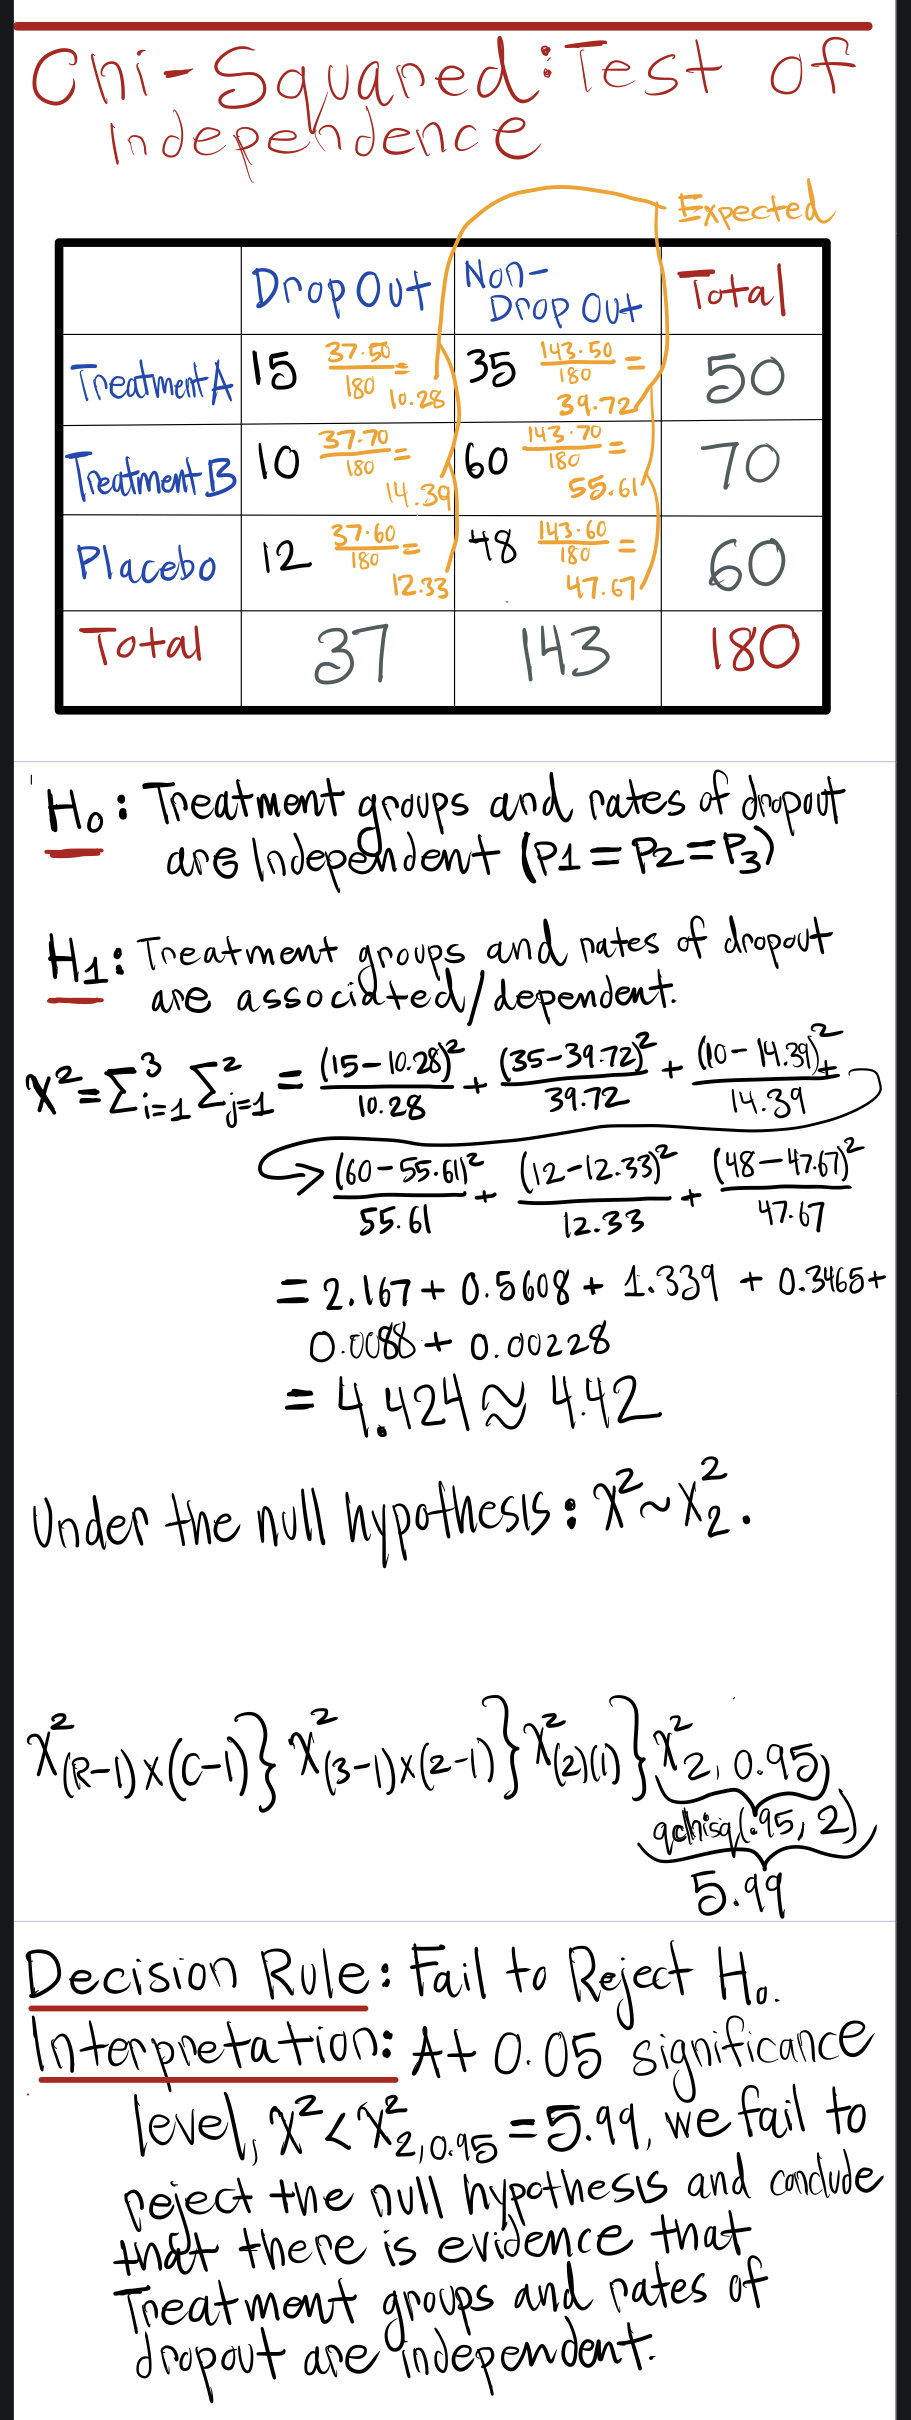 Chi-Squared: Test of
Independence
Expected
Drop Out
Non-
Drop Out
Total
Treatment A
15
37·50
180
=
10.28
35
143·50
180
=
39.72
50
Treatment B
10
37·70
180
=
14.39
60
143·70
180
=
55.61
70
Placebo
12
37·60
180
=
12.33
48
143·60
180
=
47.67
60
Total
37
143
180
H₀: Treatment groups and rates of dropout
are Independent (P1 = P2 = P3)
H1: Treatment groups and rates of dropout
are associated/dependent.
X² = Σ³ᵢ₌₁ Σ²ⱼ₌₁ = (15-10.28)²/10.28 + (35-39.72)²/39.72 + (10-14.39)²/14.39 +
(60-55.61)²/55.61 + (12-12.33)²/12.33 + (48-47.67)²/47.67
= 2.167 + 0.5608 + 1.339 + 0.3465 +
0.0088 + 0.00228
= 4.424 ≈ 4.42
Under the null hypothesis: X² ~ X²₂.
X²(R-1)x(C-1) } X²(3-1)x(2-1) } X²(2)(1) } X²2, 0.95)
qchisq(.95, 2)
5.99
Decision Rule: Fail to Reject H₀.
Interpretation: At 0.05 significance
level, X² < X²2,0.95 = 5.99, we fail to
reject the null hypothesis and conclude
that there is evidence that
Treatment groups and rates of
dropout are independent.